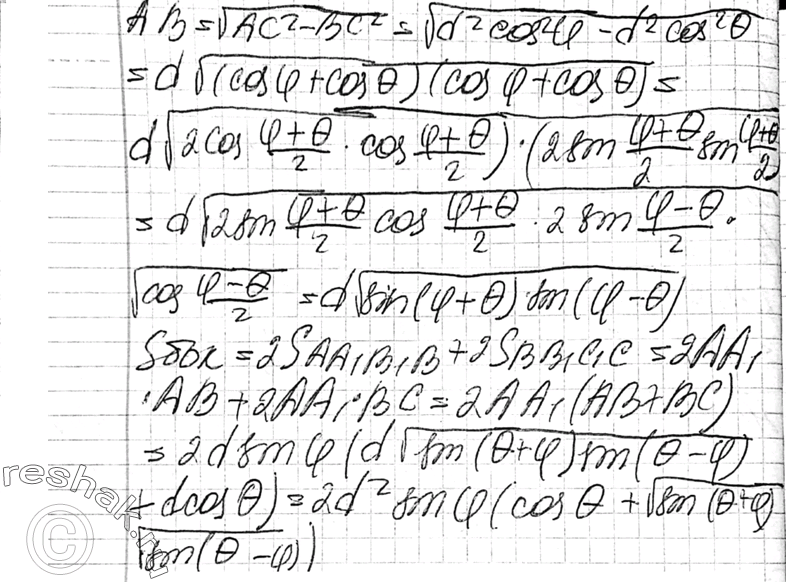 AB = √(AC² - BC²) = √(d² cos² φ - d² cos² θ)
= d √((cos φ + cos θ) (cos φ + cos θ)) =
d √(2 cos (φ + θ)/2 · cos (φ + θ)/2) · (2 sin (φ + θ)/2 sin (φ + θ)/2)
= d √(2 sin (φ + θ)/2 cos (φ + θ)/2 · 2 sin (φ - θ)/2 ·
√(cos (φ - θ)/2) = d √(sin(φ + θ) · sin(φ - θ))
Sбок = 2S AA₁B₁B + 2S BB₁C₁C = 2AA₁
· AB + 2AA₁ · BC = 2AA₁ (AB + BC)
= 2d sin φ (d √(sin (θ + φ) sin (θ - φ))
+ d cos θ) = 2d² sin φ (cos θ + √(sin (θ + φ)
√(sin (θ - φ)))
© reshak.ru